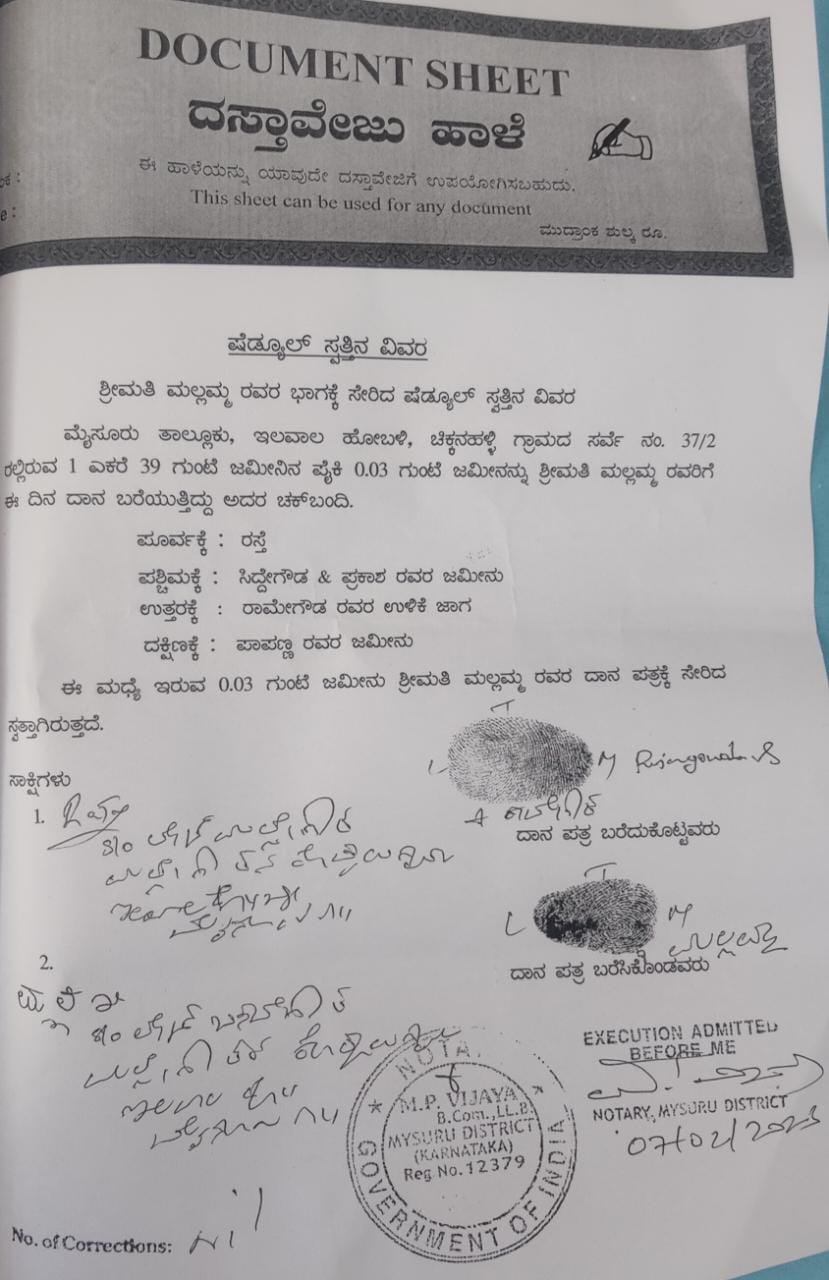 DOCUMENT SHEET
ದಸ್ತಾವೇಜು ಹಾಳೆ
ಈ ಹಾಳೆಯನ್ನು ಯಾವುದೇ ದಸ್ತಾವೇಜಿಗೆ ಉಪಯೋಗಿಸಬಹುದು.
This sheet can be used for any document
ಮುದ್ರಾಂಕ ಶುಲ್ಕ ರೂ.
ಷೆಡ್ಯೂಲ್ ಸ್ವತ್ತಿನ ವಿವರ
ಶ್ರೀಮತಿ ಮಲ್ಲಮ್ಮ ರವರ ಭಾಗಕ್ಕೆ ಸೇರಿದ ಷೆಡ್ಯೂಲ್ ಸ್ವತ್ತಿನ ವಿವರ
ಮೈಸೂರು ತಾಲ್ಲೂಕು, ಇಲವಾಲ ಹೋಬಳಿ, ಚಿಕ್ಕನಹಳ್ಳಿ ಗ್ರಾಮದ ಸರ್ವೆ ನಂ. 37/2
ರಲ್ಲಿರುವ 1 ಎಕರೆ 39 ಗುಂಟೆ ಜಮೀನಿನ ಪೈಕಿ 0.03 ಗುಂಟೆ ಜಮೀನನ್ನು ಶ್ರೀಮತಿ ಮಲ್ಲಮ್ಮ ರವರಿಗೆ
ಈ ದಿನ ದಾನ ಬರೆಯುತ್ತಿದ್ದು ಅದರ ಚಕ್‌ಬಂದಿ.
ಪೂರ್ವಕ್ಕೆ : ರಸ್ತೆ
ಪಶ್ಚಿಮಕ್ಕೆ : ಸಿದ್ದೇಗೌಡ & ಪ್ರಕಾಶ ರವರ ಜಮೀನು
ಉತ್ತರಕ್ಕೆ : ರಾಮೇಗೌಡ ರವರ ಉಳಿಕೆ ಜಾಗ
ದಕ್ಷಿಣಕ್ಕೆ : ಪಾಪಣ್ಣ ರವರ ಜಮೀನು
ಈ ಮಧ್ಯೆ ಇರುವ 0.03 ಗುಂಟೆ ಜಮೀನು ಶ್ರೀಮತಿ ಮಲ್ಲಮ್ಮ ರವರ ದಾನ ಪತ್ರಕ್ಕೆ ಸೇರಿದ
ಸ್ವತ್ತಾಗಿರುತ್ತದೆ.
ಸಾಕ್ಷಿಗಳು
1.
S/o
ದಾನ ಪತ್ರ ಬರೆದುಕೊಟ್ಟವರು
ಮಲ್ಲಮ್ಮ
ದಾನ ಪತ್ರ ಬರೆಸಿಕೊಂಡವರು
2.
S/o
EXECUTION ADMITTED
BEFORE ME
NOTARY, MYSURU DISTRICT
07/02/2023
NOTA
M.P. VIJAYA
B.Com., LL.B.
MYSURU DISTRICT
(KARNATAKA)
Reg No. 12379
GOVERNMENT OF INDIA
No. of Corrections: Nil